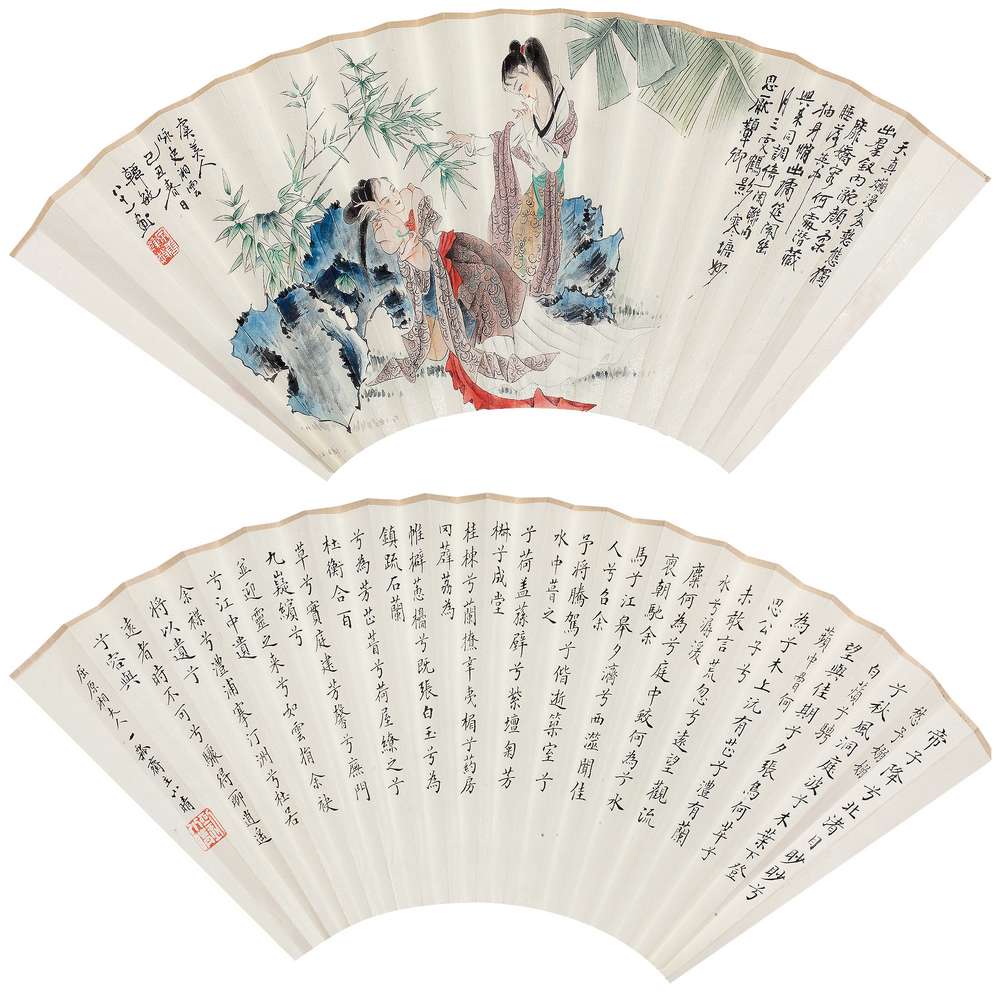 天真爛漫多憨態獨
出羣釵內酡顏
抽身其中何處潛藏
三更鶴閑聯句
思厭顰卿影寒塘
虞美人
詠史湘雲
己丑春日
帝子降兮北渚目眇眇兮
愁予嫋嫋
兮秋風洞庭波兮木葉下登
白薠兮騁
望與佳期兮夕張鳥何萃兮
蘋中罾何
為兮木上沅有芷兮澧有蘭
思公子兮
未敢言荒忽兮遠望觀流
水兮潺湲
麋何為兮庭中蛟何為兮水
裔朝馳余
馬兮江皋夕濟兮西澨聞佳
人兮召余
予將騰駕兮偕逝築室兮
水中葺之
兮荷蓋蓀壁兮紫壇匊芳
椒兮成堂
桂棟兮蘭橑辛夷楣兮药房
罔薜荔為
帷擗蕙櫋兮既張白玉兮為
鎮疏石蘭
兮為芳芷葺兮荷屋繚之兮
杜衡合百
草兮實庭建芳馨兮廡門
九嶷繽兮
並迎靈之來兮如雲捐余袂
兮江中遺
余褋兮澧浦搴汀洲兮杜若
將以遺兮
遠者時不可兮驟得聊逍遙
兮容與
屈原湘夫人